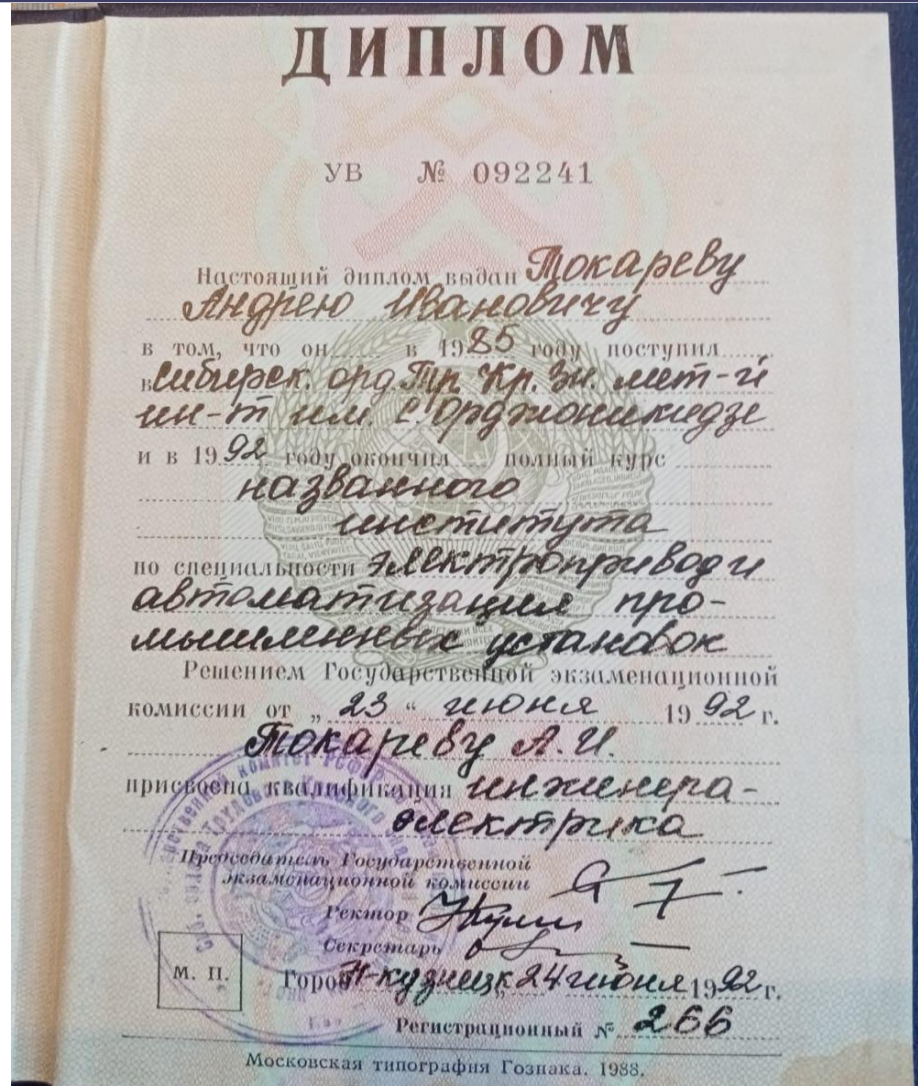 ДИПЛОМ
УВ № 092241
Настоящий диплом выдан Токареву
Андрею Ивановичу
в том, что он в 1985 году поступил
в Сибирск. орд. Тр. Кр. Зн. мет-й
ин-т им. С. Орджоникидзе
и в 1992 году окончил полный курс
названного
института
по специальности электропривод и
автоматизация про-
мышленных установок
Решением Государственной экзаменационной
комиссии от „ 23 “ июня 1992 г.
Токареву А.И.
присвоена квалификация инженера-
электрика
Председатель Государственной
экзаменационной комиссии
Ректор
Секретарь
М. П.
Город Н-кузнецк 24 июня 1992 г.
Регистрационный № 266
Московская типография Гознака. 1988.